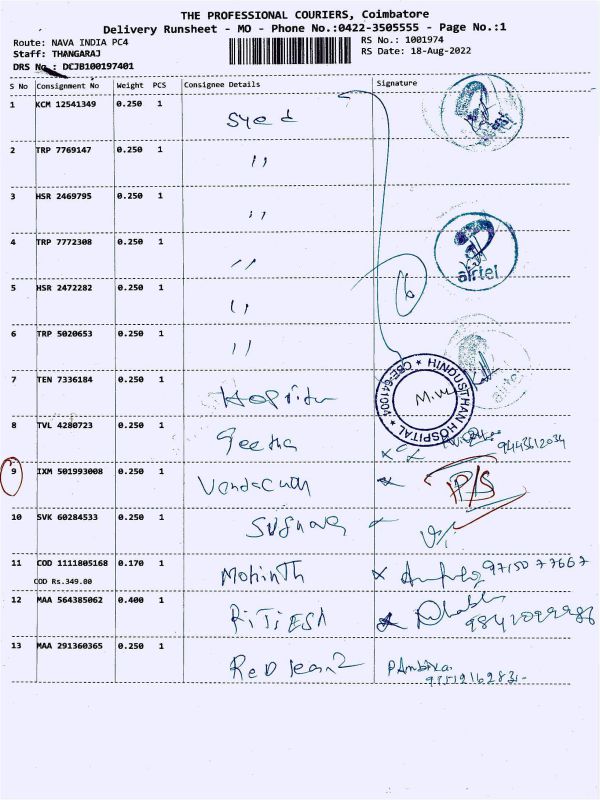 THE PROFESSIONAL COURIERS, Coimbatore
Delivery Runsheet - MO - Phone No.:0422-3505555 - Page No.:1
Route: NAVA INDIA PC4
RS No.: 1001974
Staff: THANGARAJ
RS Date: 18-Aug-2022
DRS No.: DCJB100197401
S No Consignment No Weight PCS Consignee Details Signature
1 KCM 12541349 0.250 1 Syed
2 TRP 7769147 0.250 1 "
3 HSR 2469795 0.250 1 "
4 TRP 7772308 0.250 1 " airtel
5 HSR 2472282 0.250 1 " 6
6 TRP 5020653 0.250 1 " airtel
7 TEN 7336184 0.250 1 HINDUSTHAN HOSPITAL * CBE-641004 *
8 TVL 4280723 0.250 1 Geetha
9 IXM 501993008 0.250 1 P/S
10 SVK 60284533 0.250 1
11 COD 1111805168 0.170 1 Mohinth 9715077667
COD Rs.349.00
12 MAA 564385062 0.400 1
13 MAA 291360365 0.250 1 P.Ambika